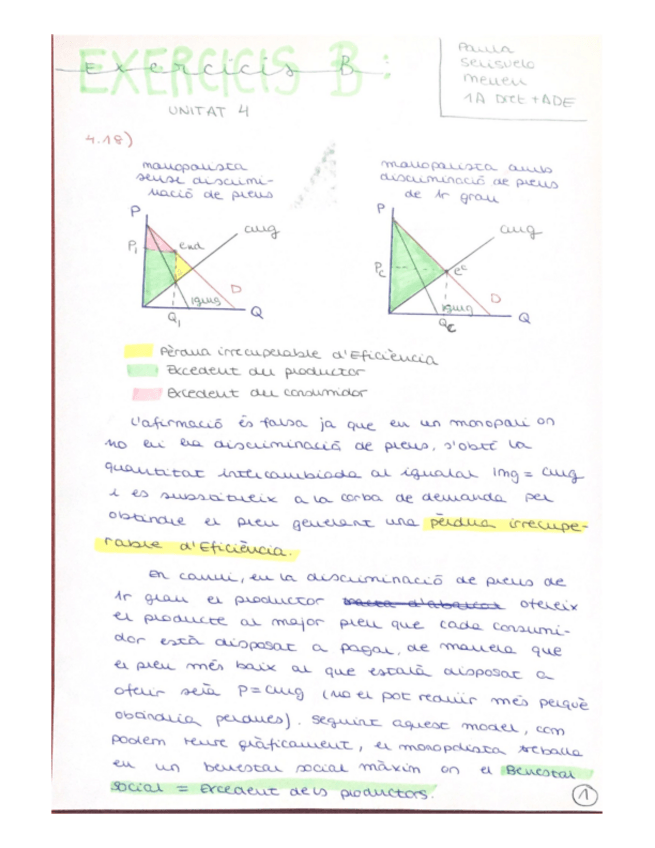 EXERCICIS B:
Exercicis B
UNITAT 4
Paula
Sensivelo
Meneu
1A Dret + ADE
4.18)
monopolista
sense discrimi-
nació de preus
monopolista amb
discriminació de preus
de 1r grau
P
cmg
P1
end
D
img
Q1
Q
P
cmg
Pc
ec
D
img
Qc
Q
Pèrdua irrecuperable d'Eficiència
Excedent del productor
Excedent del consumidor
L'afirmació és falsa ja que en un monopoli on
no hi ha discriminació de preus, s'obté la
quantitat intercambiada al igualar Img = cmg
i es substitueix a la corba de demanda per
obtindre el preu generant una pèrdua irrecupe-
rable d'Eficiència.
En canvi, en la discriminació de preus de
1r grau el productor tracta d'abarcar ofereix
el producte al major preu que cada consumi-
dor està disposat a pagar, de manera que
el preu més baix al que estarà disposat a
oferir serà P=cmg (no el pot reduir més perquè
obtindria perdues). Seguint aquest model, com
podem veure gràficament, el monopolista treballa
en un benestar social màxim on el Benestar
social = Excedent dels productors.
1